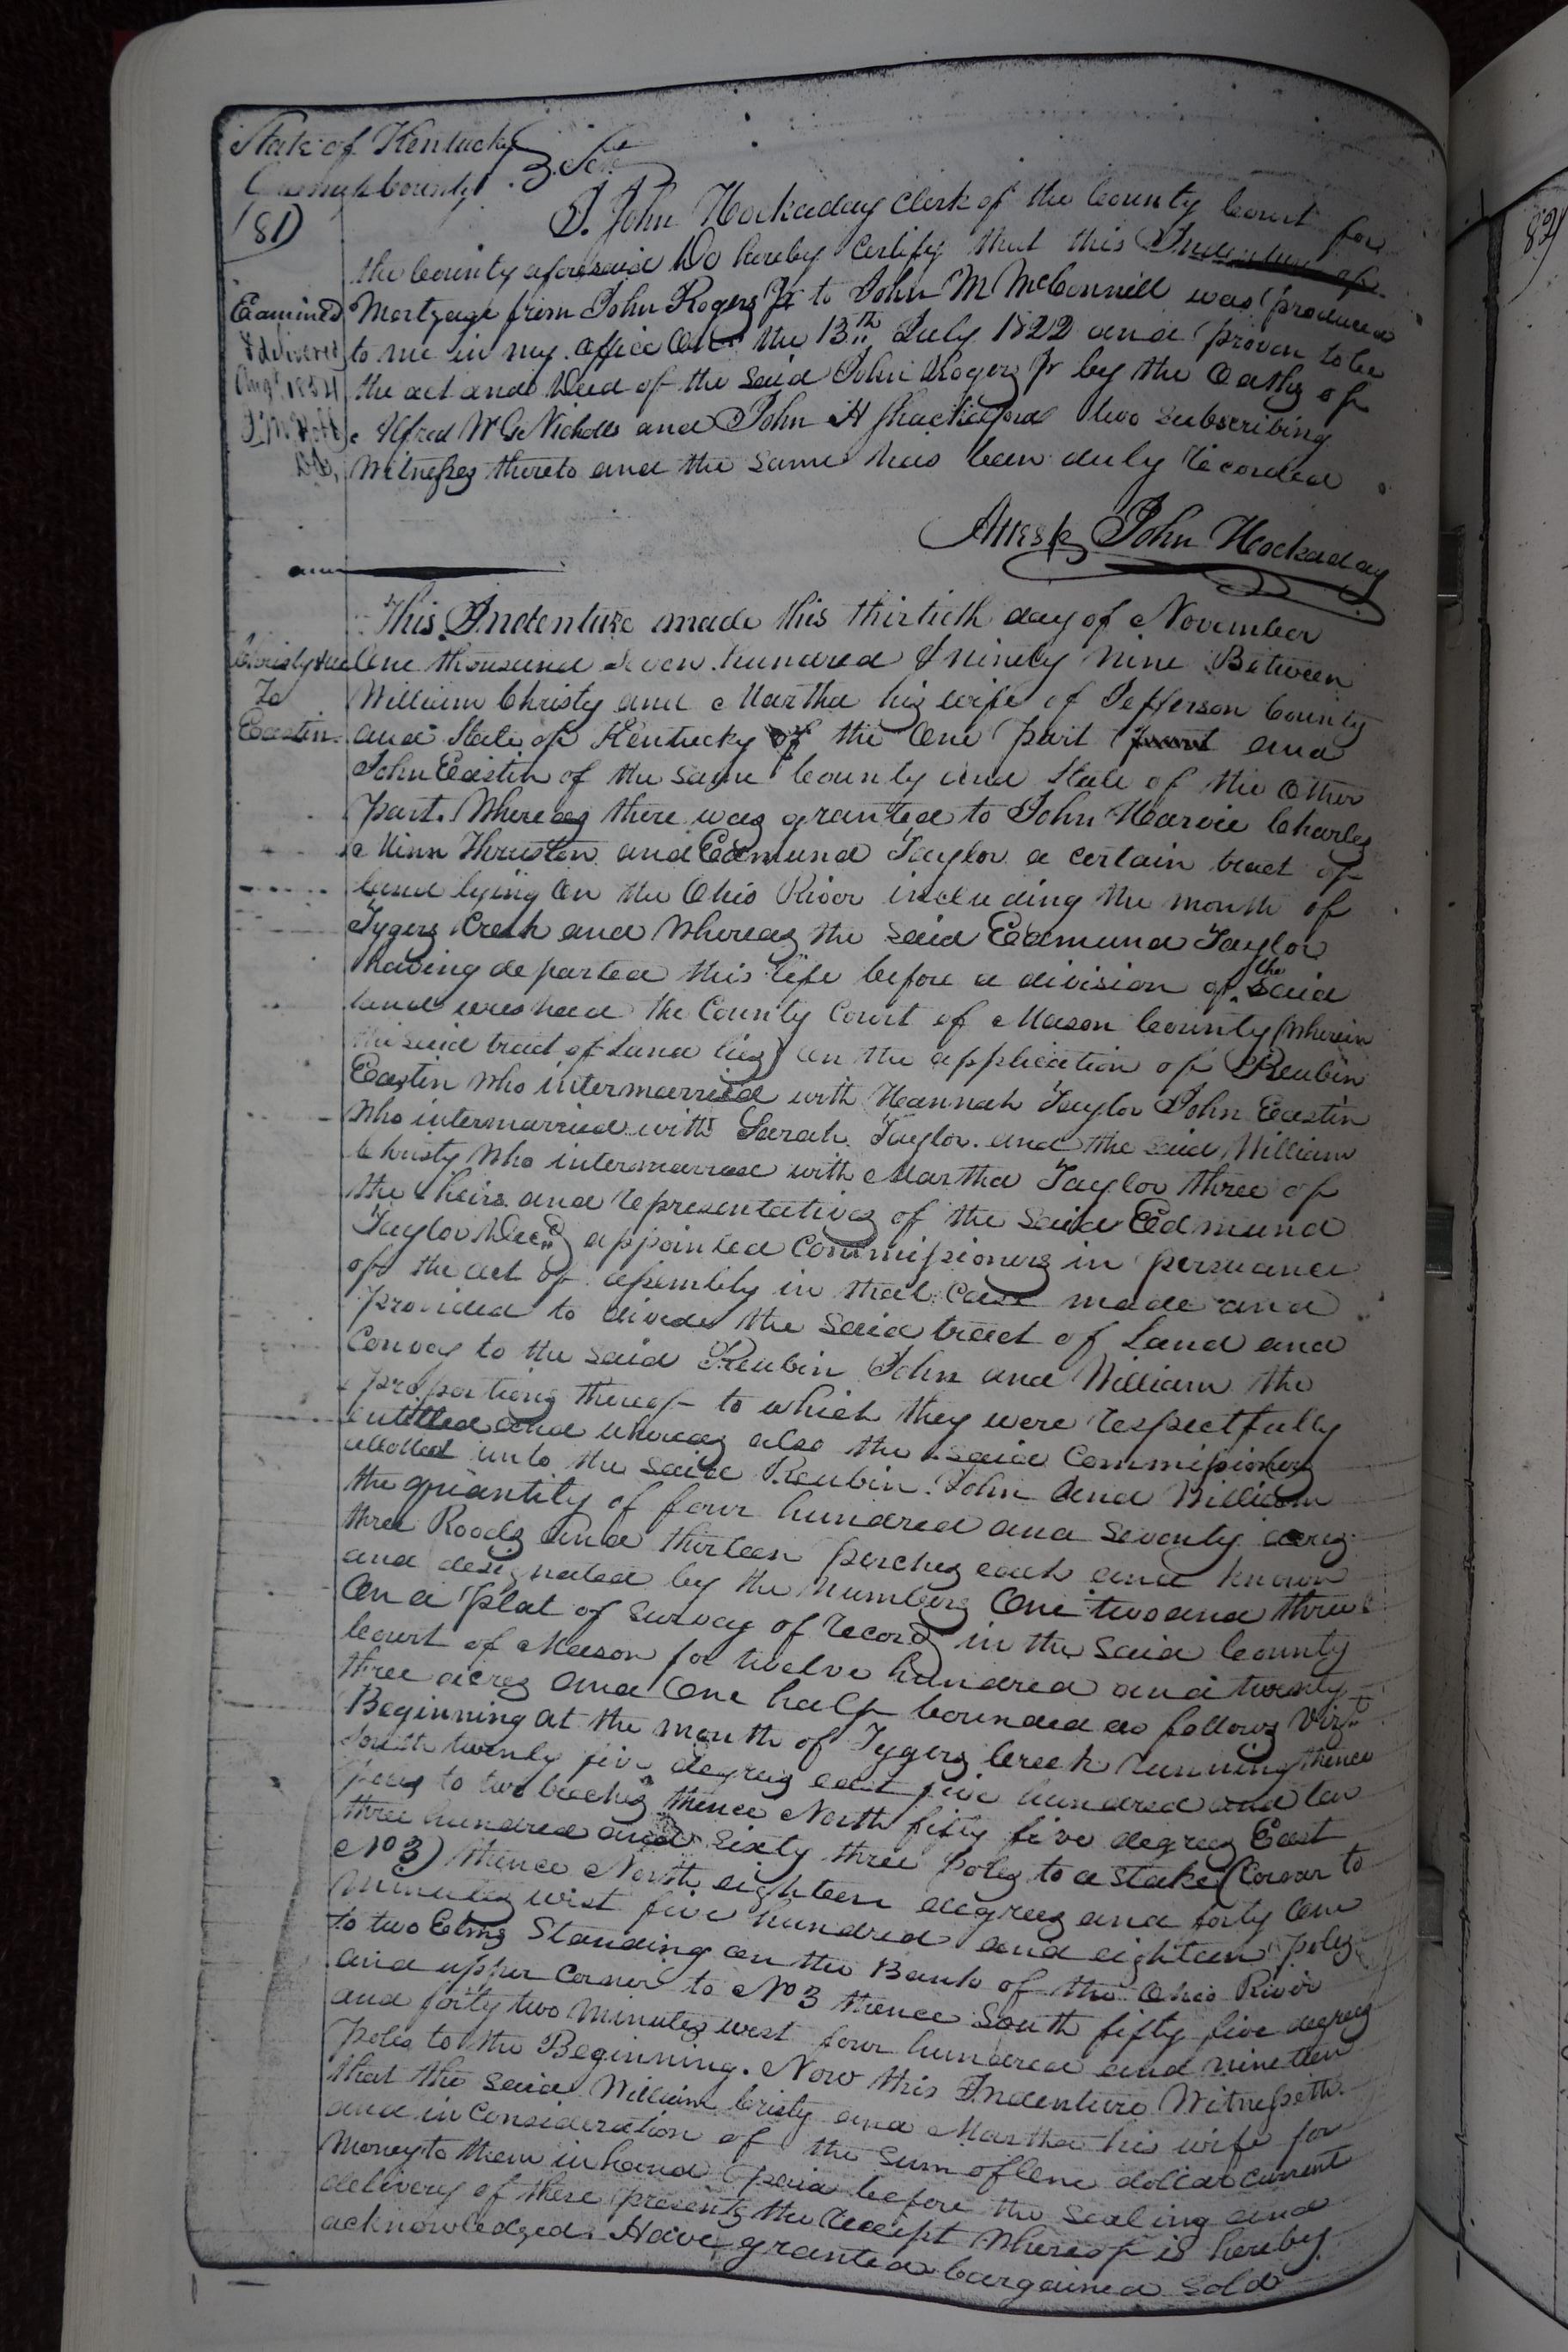 State of Kentucky
Greenup County Sct
(81)
I, John Hockaday Clerk of the County Court for
the County aforesaid Do hereby Certify that this Indenture of
Mortgage from John Rogers Jr to John M McConnell was produced
to me in my office On the 13th July 1822 and proven to be
the act and Deed of the said John Rogers Jr by the Oaths of
Alfred W G Nicholls and John H Shackleford two subscribing
Witnesses thereto and the same has been duly recorded
Attest John Hockaday
Examined
& delivered
Augt 1854
This Indenture made this thirtieth day of November
One thousand seven hundred & ninety nine Between
William Christy and Martha his wife of Jefferson County
and State of Kentucky of the One part and
John Eastin of the same County and State of the Other
part. Whereas there was granted to John Harvie Charles
Minn Thruston and Edmund Taylor a certain tract of
land lying On the Ohio River including the mouth of
Tygers Creek and Whereas the said Edmund Taylor
having departed this life before a division of the said
land was had the County Court of Mason County (wherein
the said tract of Land lies) on the application of Reubin
Eastin who intermarried with Hannah Taylor John Eastin
who intermarried with Sarah Taylor and the said William
Christy who intermarried with Martha Taylor three of
the heirs and representatives of the said Edmund
Taylor Decd appointed Commissioners in persuance
of the act of assembly in that case made and
provided to divide the said tract of Land and
Convey to the said Reubin John and William the
proportions thereof to which they were respectfully
entitled and whereas also the said Commissioners
allotted unto the said Reubin John and William
the quantity of four hundred and seventy acres
three Roods and thirteen perches each and known
and designated by the numbers One two and three
On a plat of survey of record in the said County
Court of Mason for twelve hundred and twenty
three acres and One half bounded as follows Viz
Beginning at the mouth of Tygers Creek running thence
South twenty five degrees east five hundred and ten
poles to two beeches thence North fifty five degrees East
three hundred and sixty three poles to a stake (Cornar to
No 3) thence North eighteen degrees and forty One
minutes west five hundred and eighteen poles
to two Elms Standing on the Bank of the Ohio River
and upper corner to No 3 thence South fifty five degrees
and forty two minutes west four hundred and nineteen
poles to the Beginning. Now this Indenture Witnesseth
that the said William Cristy and Martha his wife for
and in Consideration of the sum of One dollar current
money to them in hand paid before the sealing and
delivery of these presents the Receipt whereof is hereby
acknowledged. Have granted bargained sold
Christy &c
To
Eastin